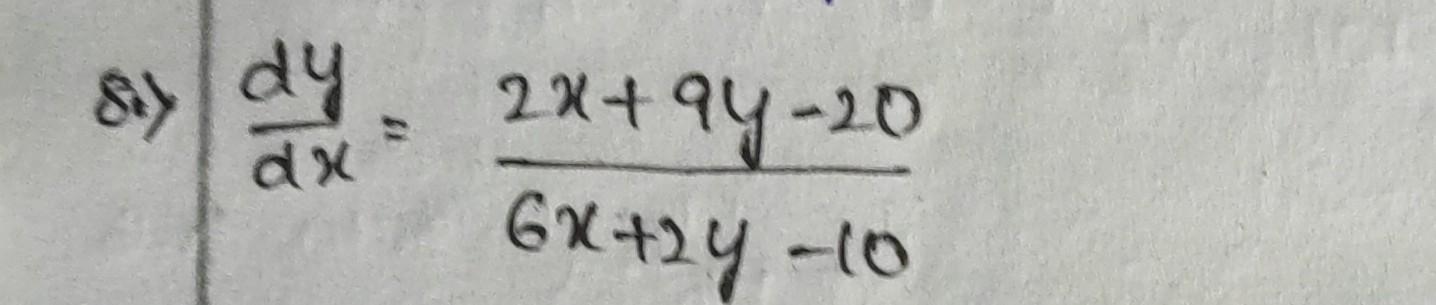 8i) dy/dx = 2x+9y-20/6x+2y-10